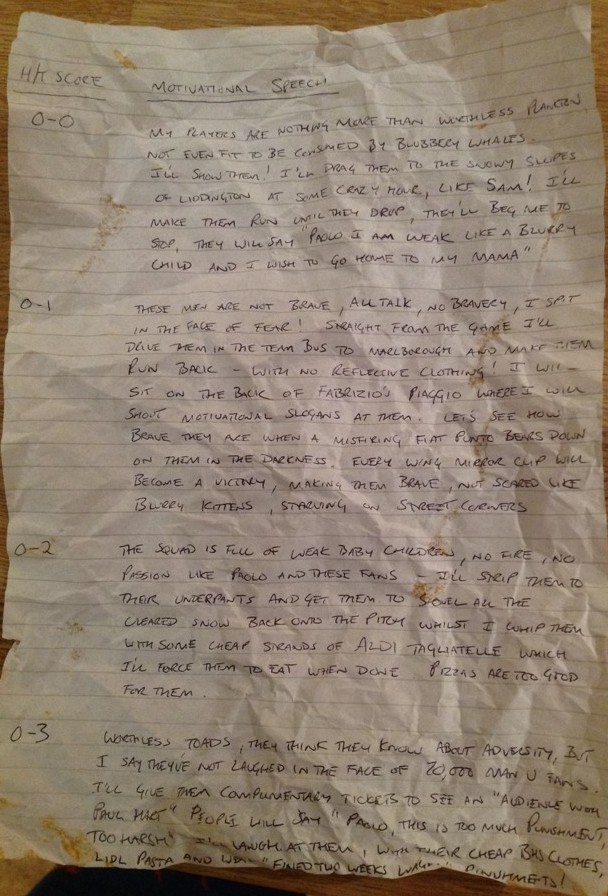 H/T SCORE MOTIVATIONAL SPEECH
0-0 MY PLAYERS ARE NOTHING MORE THAN WORTHLESS PLANKTON
NOT EVEN FIT TO BE CONSUMED BY BLUBBERY WHALES.
I'LL SHOW THEM! I'LL DRAG THEM TO THE SNOWY SLOPES
OF LIDDINGTON AT SOME CRAZY HOUR, LIKE 5AM! I'LL
MAKE THEM RUN UNTIL THEY DROP, THEY'LL BEG ME TO
STOP, THEY WILL SAY "PAOLO I AM WEAK LIKE A BLURRY
CHILD AND I WISH TO GO HOME TO MY MAMA"
0-1 THESE MEN ARE NOT BRAVE, ALL TALK, NO BRAVERY, I SPIT
IN THE FACE OF FEAR! STRAIGHT FROM THE GAME I'LL
DRIVE THEM IN THE TEAM BUS TO MARLBOROUGH AND MAKE THEM
RUN BACK - WITH NO REFLECTIVE CLOTHING! I WILL
SIT ON THE BACK OF FABRIZIO'S PIAGGIO WHERE I WILL
SHOUT MOTIVATIONAL SLOGANS AT THEM. LET'S SEE HOW
BRAVE THEY ARE WHEN A MISFIRING FIAT PUNTO BEARS DOWN
ON THEM IN THE DARKNESS. EVERY WING MIRROR CLIP WILL
BECOME A VICTORY, MAKING THEM BRAVE, NOT SCARED LIKE
BLURRY KITTENS, STARVING ON STREET CORNERS
0-2 THE SQUAD IS FULL OF WEAK BABY CHILDREN, NO FIRE, NO
PASSION LIKE PAOLO AND THESE FANS - I'LL STRIP THEM TO
THEIR UNDERPANTS AND GET THEM TO SHOVEL ALL THE
CLEARED SNOW BACK ONTO THE PITCH WHILST I WHIP THEM
WITH SOME CHEAP STRANDS OF ALDI TAGLIATELLE WHICH
I'LL FORCE THEM TO EAT WHEN DONE PIZZAS ARE TOO GOOD
FOR THEM.
0-3 WORTHLESS TOADS, THEY THINK THEY KNOW ABOUT ADVERSITY, BUT
I SAY THEYVE NOT LAUGHED IN THE FACE OF 70,000 MAN U FANS.
I'LL GIVE THEM COMPLIMENTARY TICKETS TO SEE AN "AUDIENCE WITH
PAUL HART" PEOPLE WILL SAY "PAOLO, THIS IS TOO MUCH PUNISHMENT,
TOO HARSH" I'LL LAUGH AT THEM, WITH THEIR CHEAP BHS CLOTHES,
LIDL PASTA AND "FINED TWO WEEKS PUNISHMENTS!